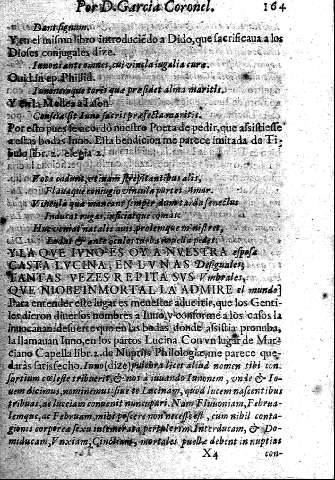 Por D. Garcia Coronel. 164
Dant signum.
Y en el mismo libro introduciẽdo a Dido, que sacrificaua a los
Dioses conjugales, dize.
Iunoni ante omnes, cui vincla iugalia curæ.
Ouid. in ep. Phillid.
Iunonemque toris quæ præsidet alma maritis.
Y en la Medea a Iason
Conscia sit Iuno sacris præfecta maritis.
Por esto pues se acordò nuestro Poeta de pedir, que assistiesse
a estas bodas Iuno. Esta bendicion me parece imitada de Ti-
bulo libr. 2. elegia 2.
Vota cadunt, strepitantibus alis,
Flauaque coniugio vincula portet Amor.
Vincula quæ maneant semper dum tarda senectus
Inducat rugas, inficiatque comas:
natalis auis, prolemque ministret,
Ludat & ante tuos turba nouella pedes.
Y LA QVE IVNO ES OY A NVESTRA esposa
CASTA LVCINA, EN LVNAS Desiguales,
TANTAS VEZES REPITA SVS Vmbrales,
QVE NIOBE INMORTAL LA ADMIRE el mundo
Para entender este lugar es menester aduertir, que los Genti-
les dieron diuersos nombres a Iuno, y conforme a los casos la
inuocauan: de suerte que en las bodas, donde assistia pronuba,
la llamauan Iuno, en los partos Lucina. Con vn lugar de Mar-
ciano Capella libr. 2. de Nuptiis Philologiæ, me parece que-
darà satisfecho. Iuno (dize) pulchra licet aliud nomen tibi con-
sortium cœleste tribuerit, & nos à iuuando Iunonem, vnde & Io-
uem dicimus, nominemus: siue te Lucinam, quod lucem nascentibus
tribuas, ac Luciam conuenit nuncupari. Nam Fluuoniam, Februa-
lemque, ac Februam, mihi poscere non necesse est, cum nihil contag-
gionis corporeæ sexu intemerata pertulerim. Interducam, & Do-
miducam, Vnxiam, Cinctiam, mortales puellæ debent in nuptias
X4 con-